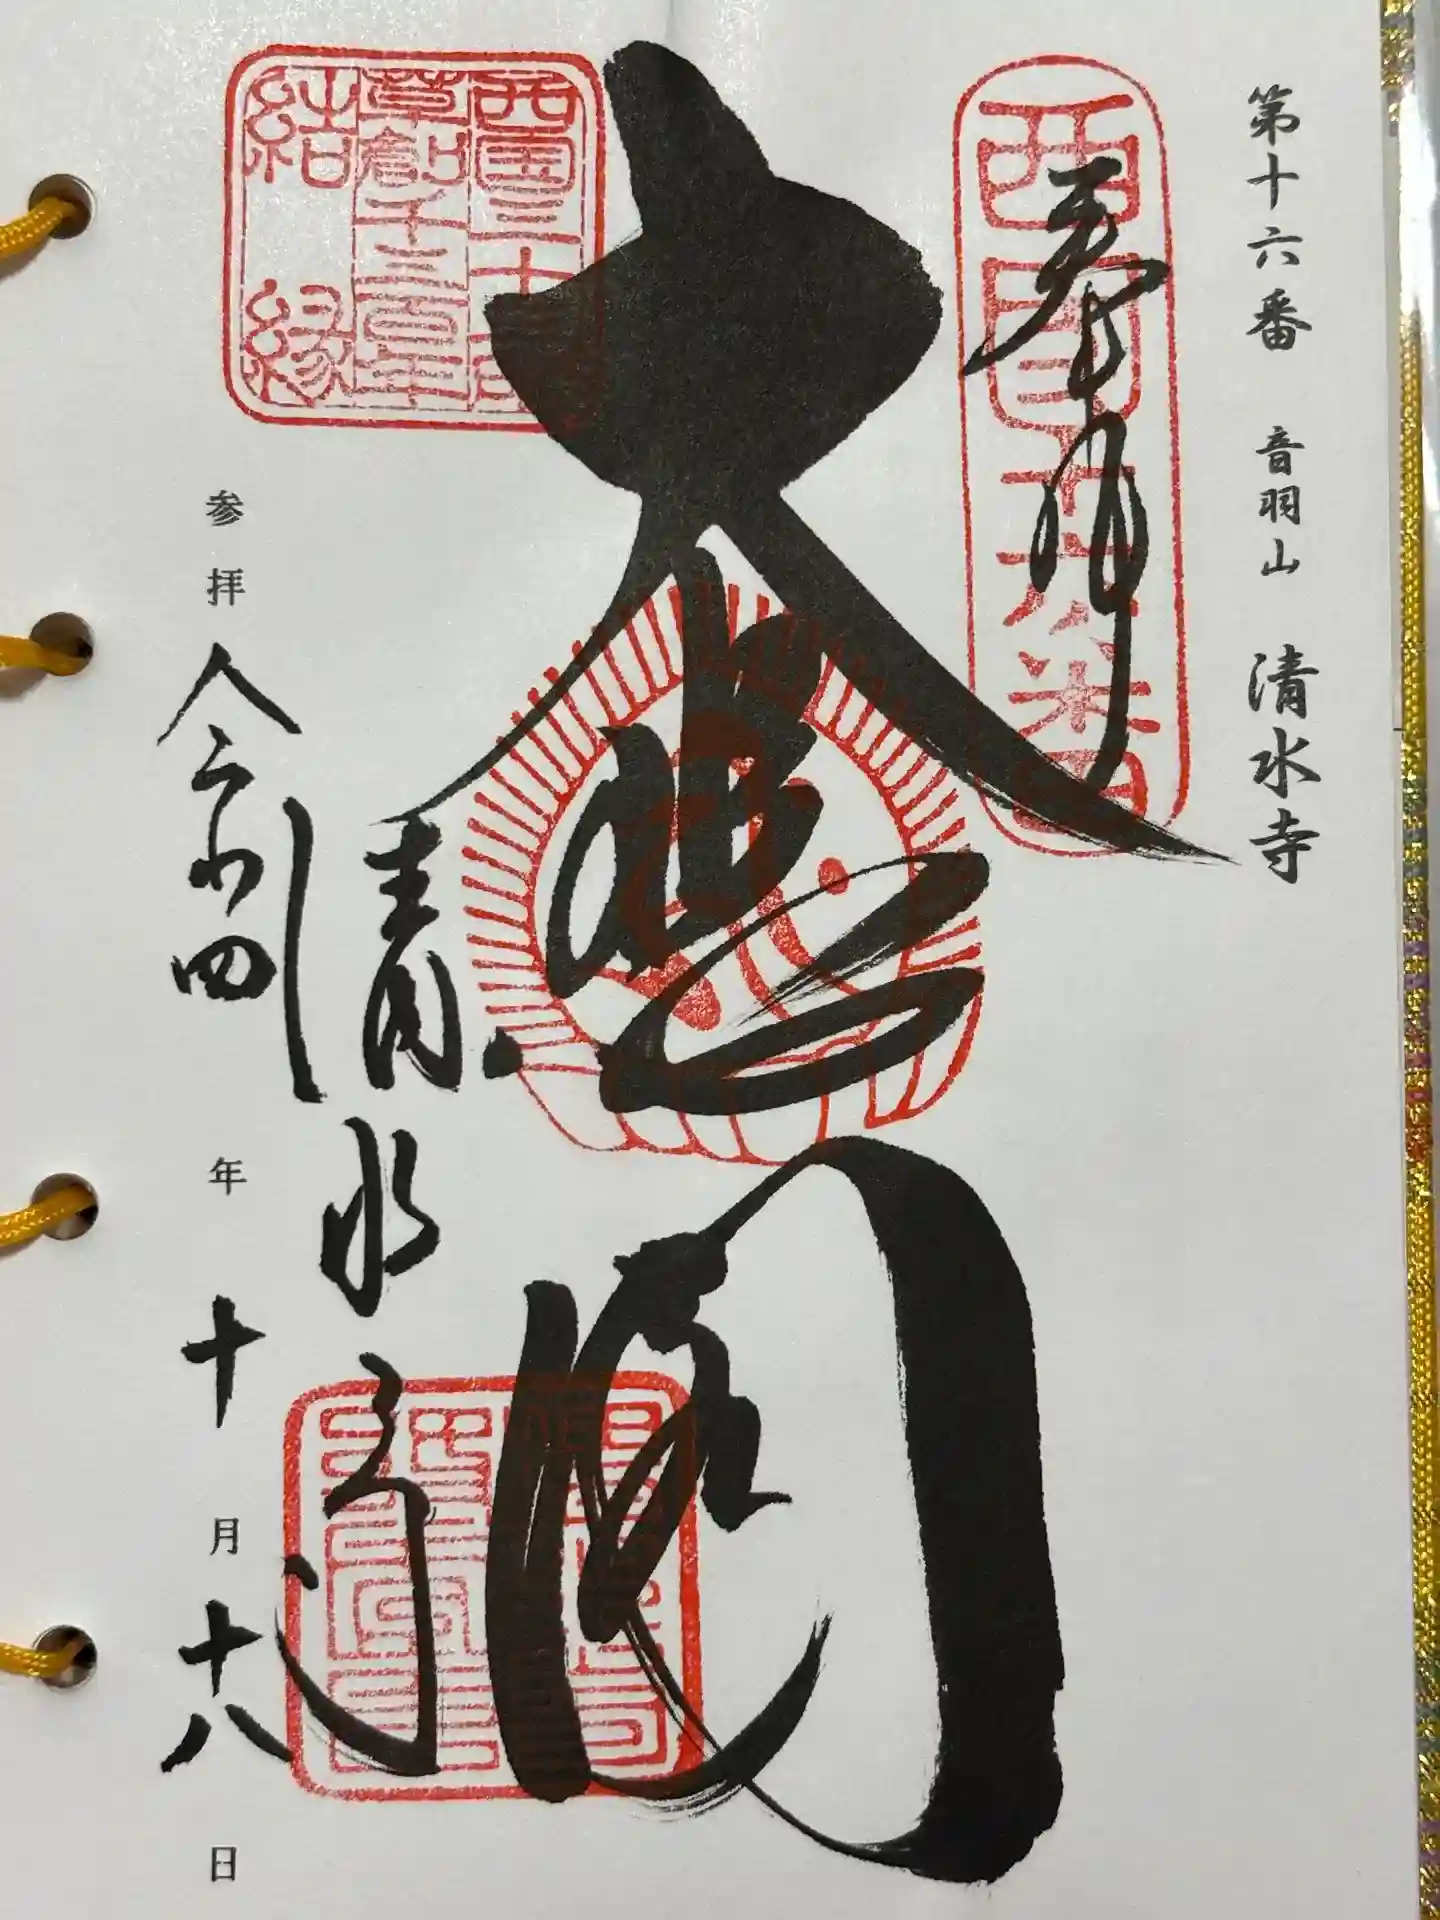 第十六番 音羽山 清水寺
奉拝
西国十六番
大悲閣
西国三十三所
草創千三百年
結縁
清水寺
参拝 令和四年 十月 十八日